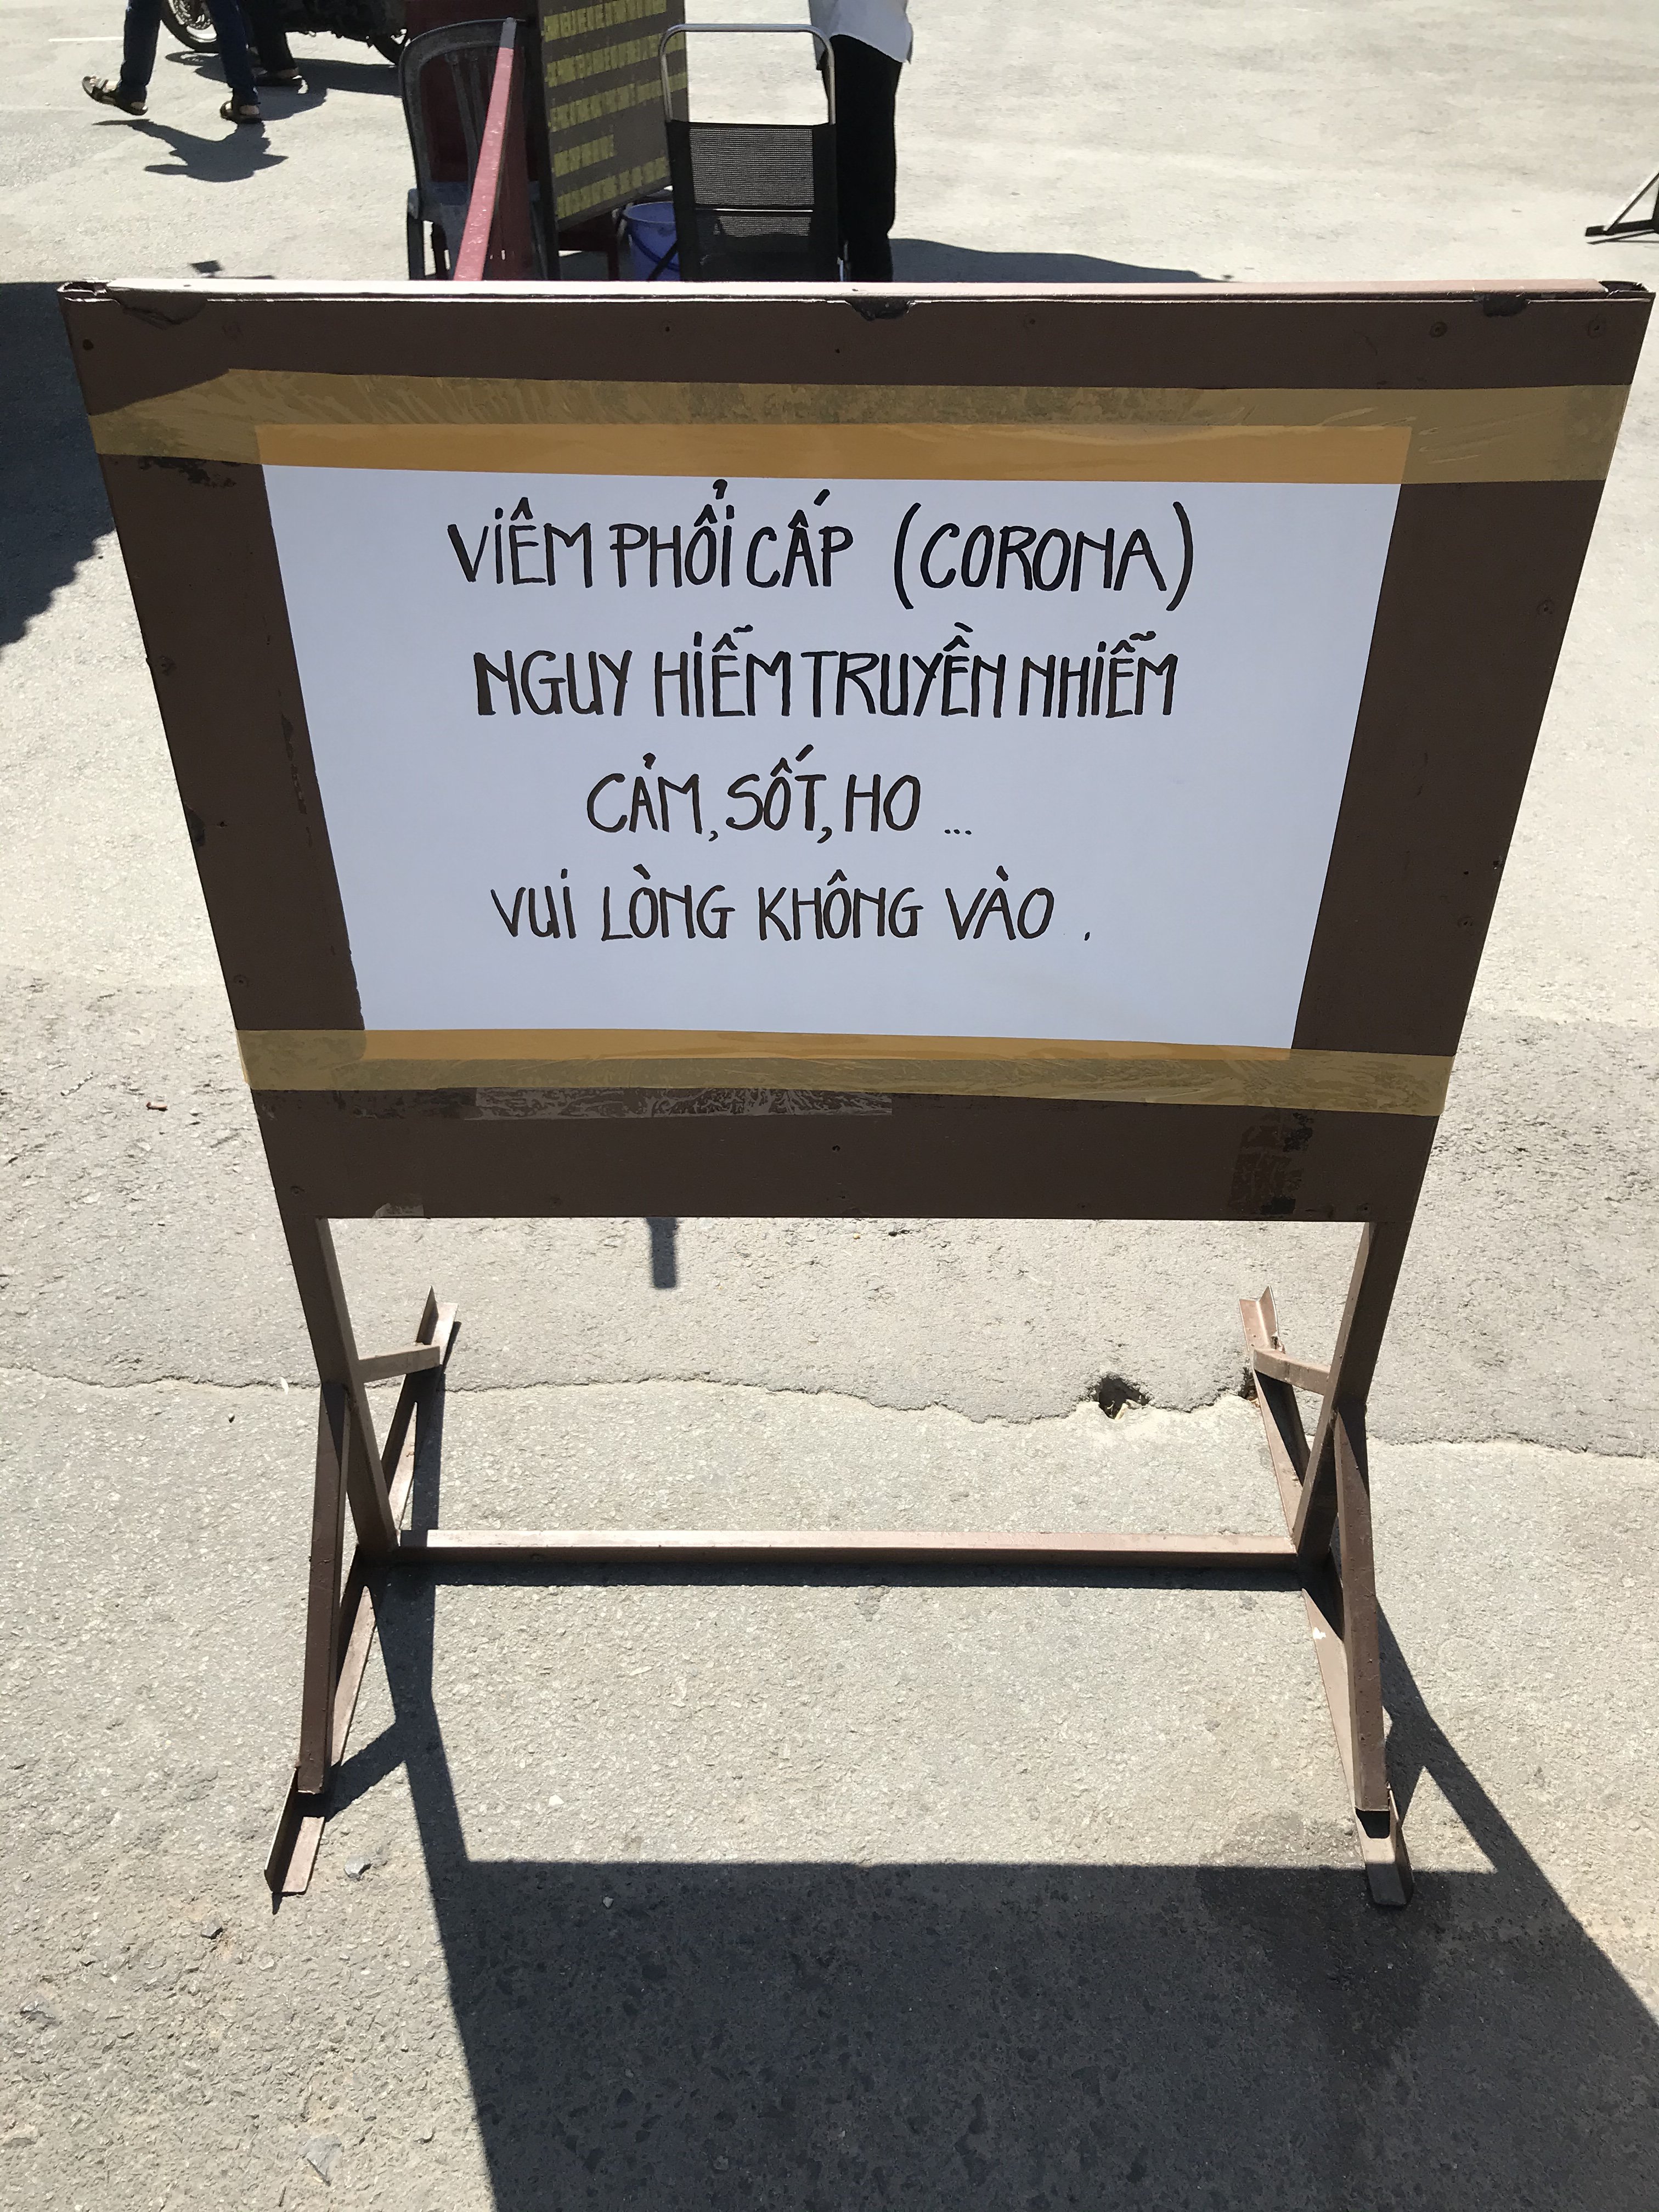 VIÊM PHỔI CẤP (CORONA)
NGUY HIỄM TRUYỀN NHIỄM
CẢM, SỐT, HO ...
VUI LÒNG KHÔNG VÀO .